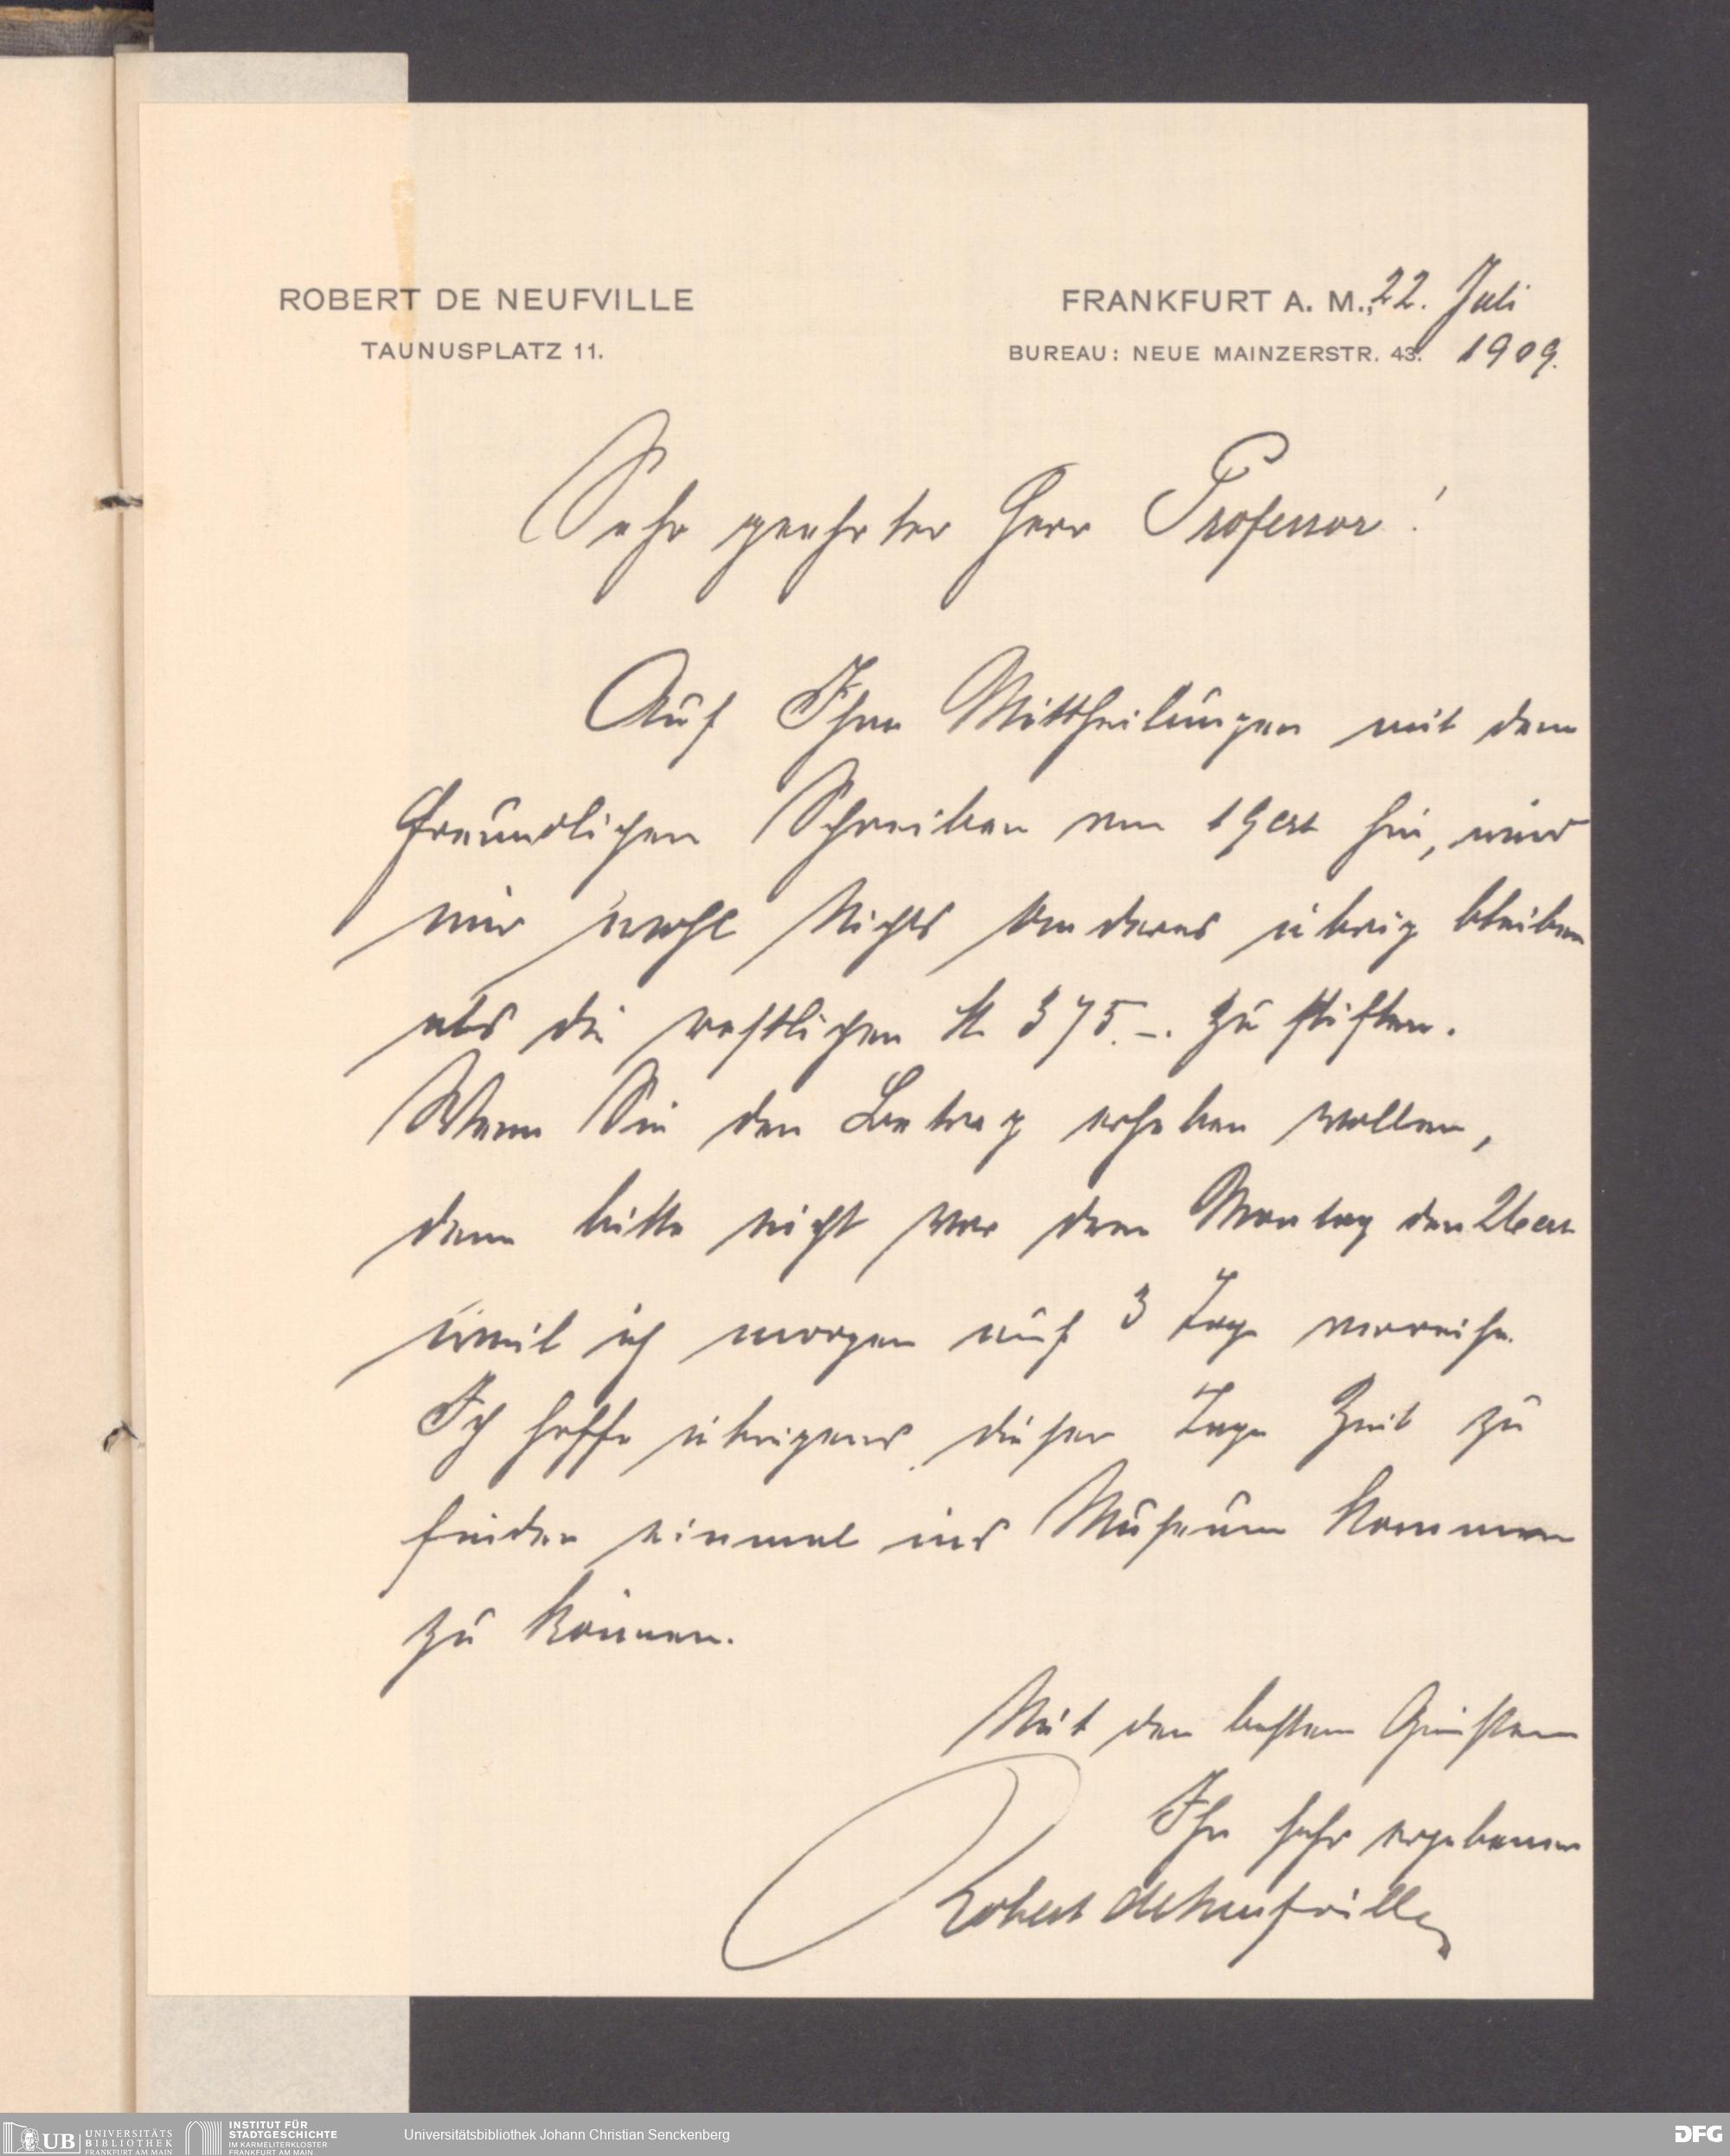 ROBERT DE NEUFVILLE
TAUNUSPLATZ 11.
FRANKFURT A. M., 22. Juli
BUREAU: NEUE MAINZERSTR. 43. 1909.
Sehr geehrter Herr Professor!
Auf Ihre Mittheilungen mit dem
freundlichen Schreiben vom 19 crt hin, wird
mir wohl Nichts Anderes übrig bleiben
als die restlichen M 375.–. zu stiften.
Wenn Sie den Betrag erheben wollen,
dann bitte nicht vor dem Montag den 26 crt
weil ich morgen auf 3 Tage verreise.
Ich hoffe übrigens dieser Tage Zeit zu
finden einmal ins Museum kommen
zu können.
Mit den besten Grüssen
Ihr sehr ergebener
Robert de Neufville
UB UNIVERSITÄTS
BIBLIOTHEK
FRANKFURT AM MAIN
INSTITUT FÜR
STADTGESCHICHTE
IM KARMELITERKLOSTER
FRANKFURT AM MAIN
Universitätsbibliothek Johann Christian Senckenberg
DFG